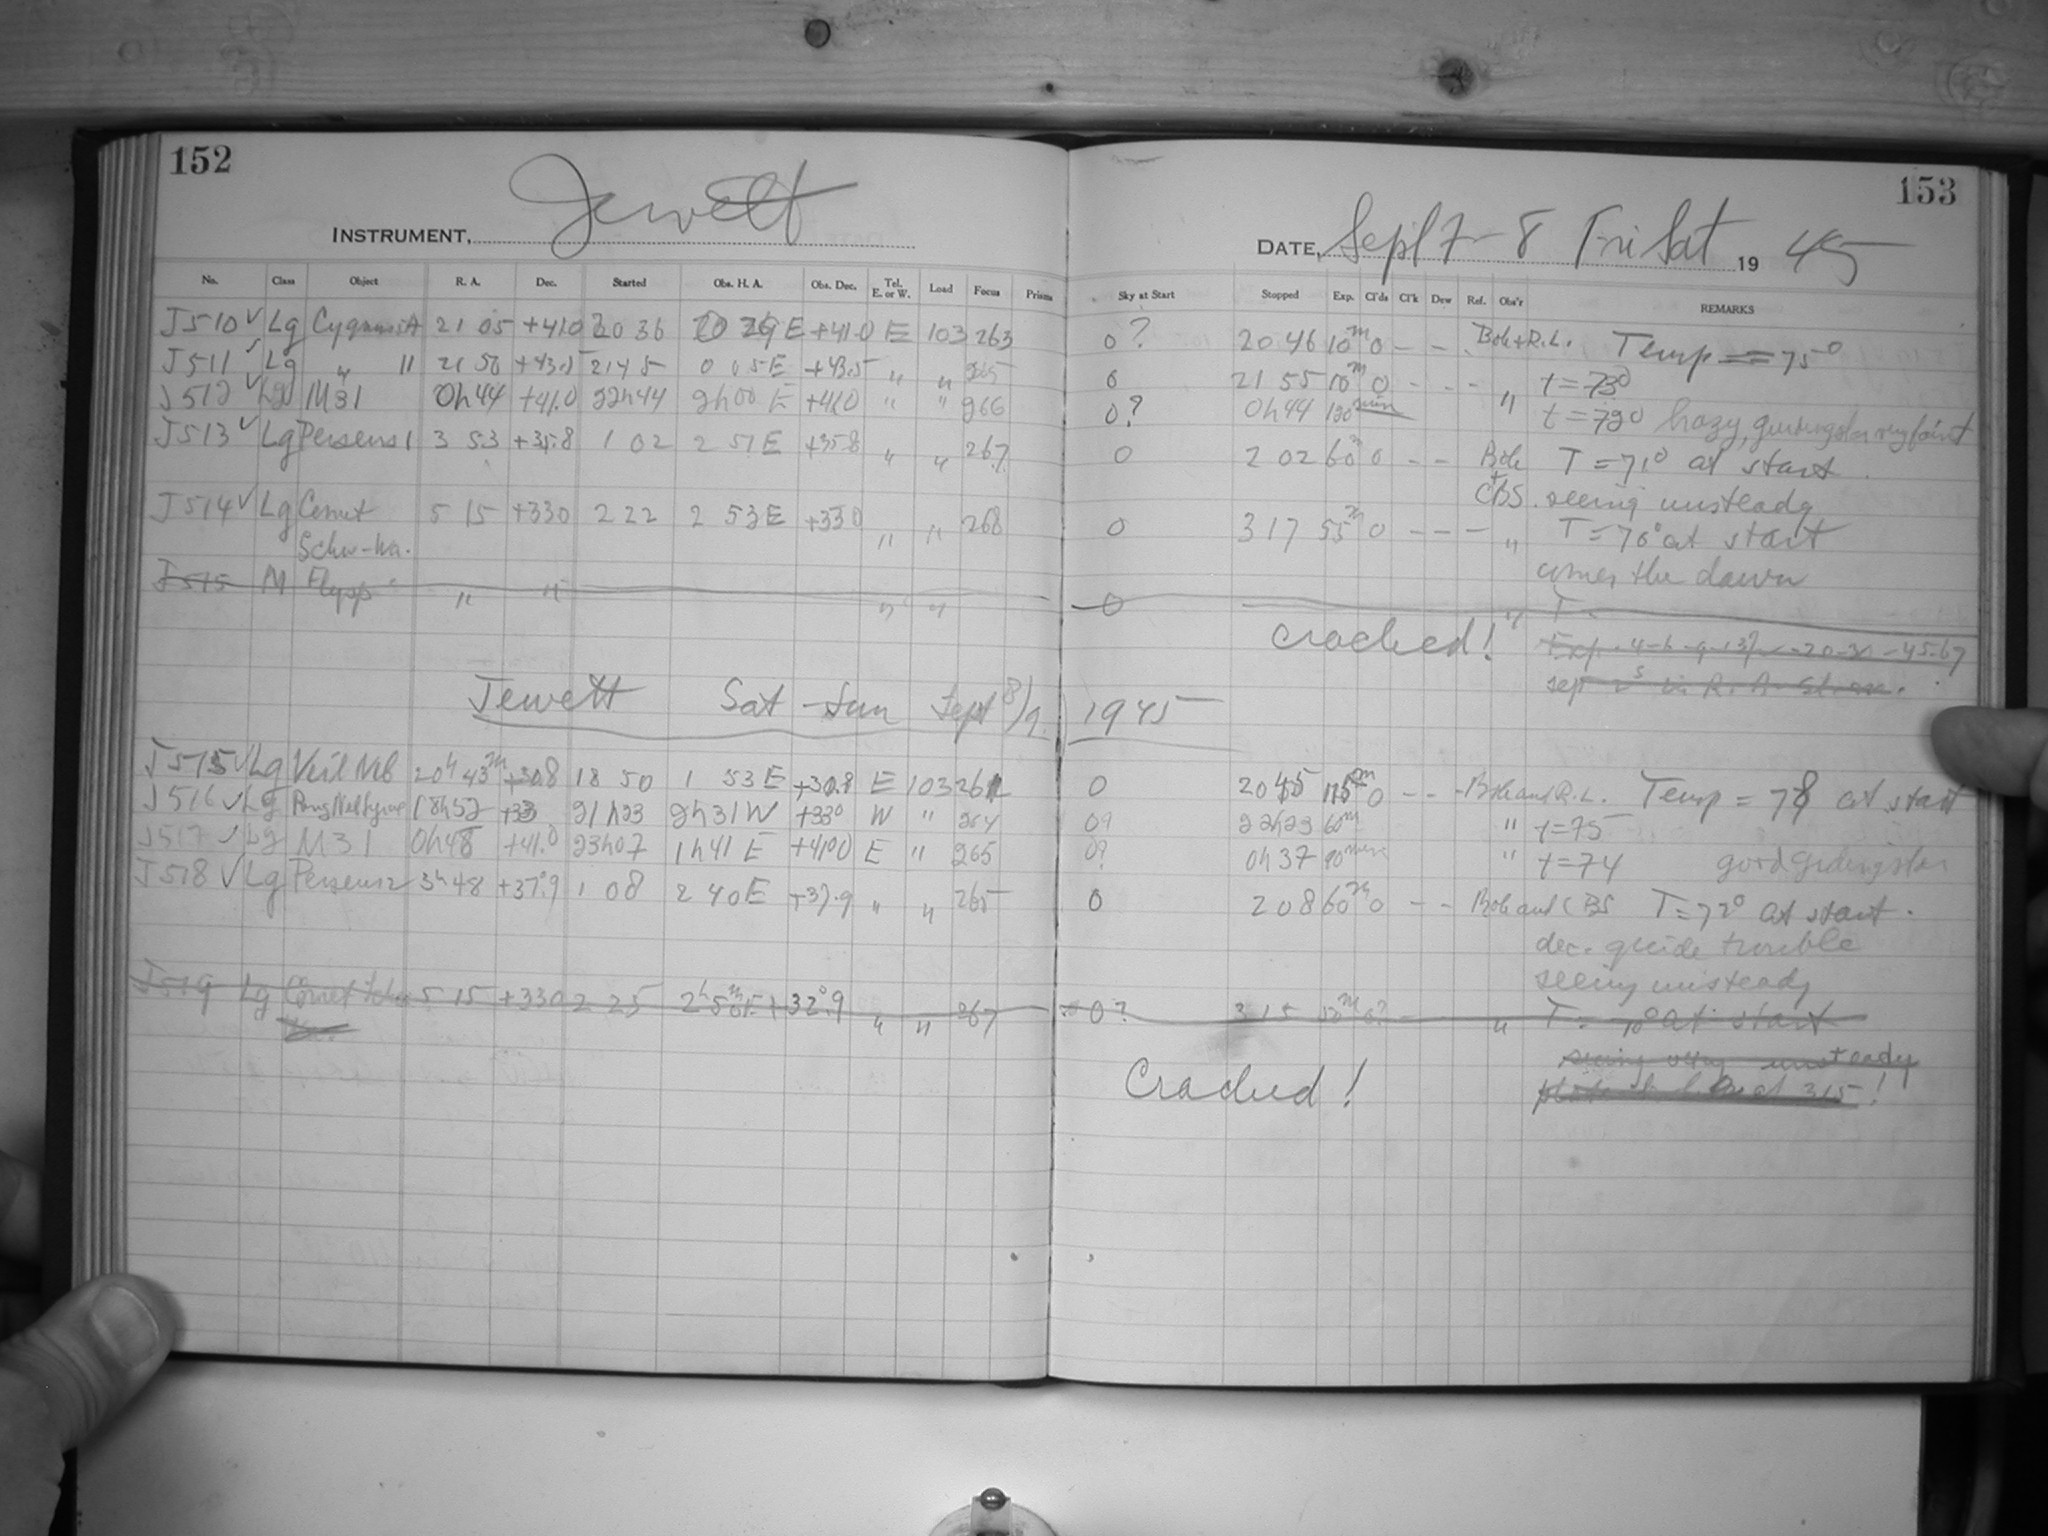 152
153
INSTRUMENT, Jewett
DATE, Sept 7-8 Fri Sat 19 45
No. Class Object R. A. Dec. Started Obs. H. A. Obs. Dec. Tel. E. or W. Load Focus Prism Sky at Start Stopped Exp. Cl'ds Cl'k Dew Ref. Obs'r REMARKS
J510 ✓ Lg Cygnus A 21 05 +41.0 20 36 0 29 E +41.0 E 103 263 0? 20 46 10m 0 - - Bok+R.L. Temp = 75°
J511 ✓ Lg " " 21 50 +43.5 21 45 0 05 E +43.5 " " 265 0 21 55 10m 0 - - - " t = 73°
J512 ✓ Lg M31 0h44 +41.0 22h44 2h00 E +41.0 " " 266 0? 0h44 120 min t = 72° hazy, guiding star very faint
J513 ✓ Lg Perseus 1 3 53 +35.8 1 02 2 51 E +35.8 " " 267 0 2 02 60m 0 - - Bok + CBS. T = 71° at start
seeing unsteady
J514 ✓ Lg Comet Schw-Wa. 5 15 +33.0 2 22 2 53 E +33.0 " " 268 0 3 17 55m 0 - - - " T = 70° at start
comes the dawn
J515 M " " " " 0 " T
cracked!
Jewett Sat - Sun Sept 8/9 1945
J515 ✓ Lg Veil Neb 20h 43m +30.8 18 50 1 53 E +30.8 E 103 262 0 20 45 115m 0 - - - Bok and R.L. Temp = 78 at start
J516 ✓ Lg 18h52 +33 21h23 2h31 W +33° W " 264 0? 22h23 60m " t = 75
J517 ✓ Lg M31 0h48 +41.0 23h07 1h41 E +41.0 E " 265 0? 0h37 90 min " t = 74 good guiding star
J518 ✓ Lg Perseus 2 3h 48 +37.9 1 08 2 40 E +37.9 " " 265 0 2 08 60m 0 - - Bok and CBS T = 72° at start.
dec. guide trouble
seeing unsteady
J519 Lg Comet 5 15 +33.0 2 25 2h 50m E +32.9 " " 267 0? 3 15 50m 0? - " T = 70° at start
seeing very unsteady
at 315!
Cracked!